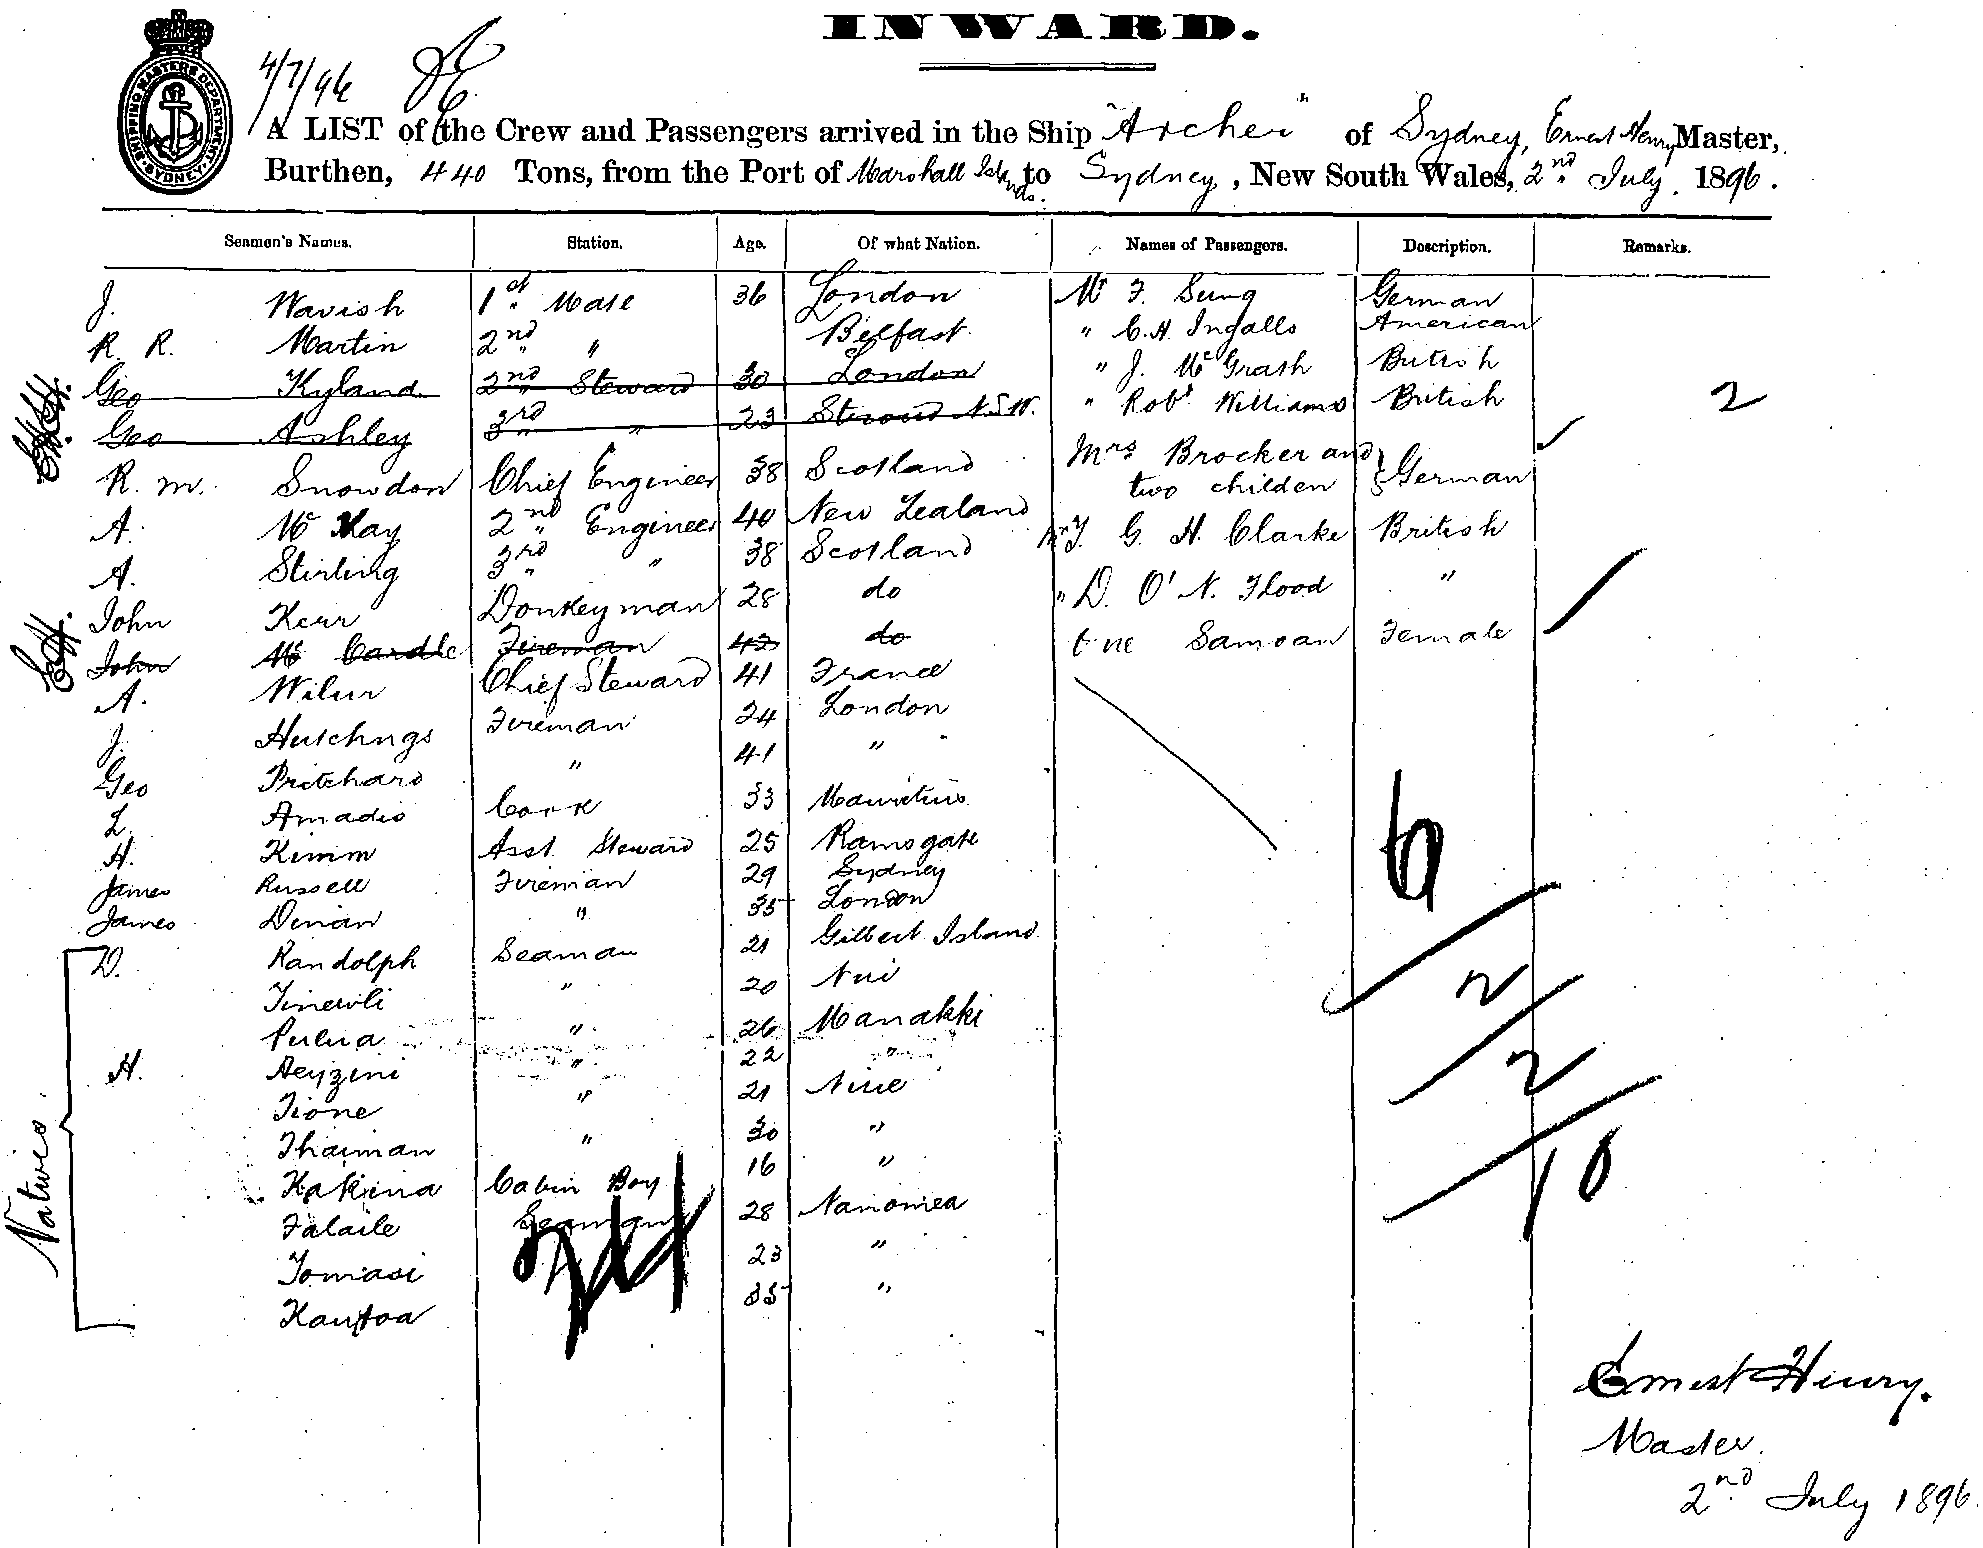 INWARD.
SHIPPING MASTER'S DEPARTMENT SYDNEY
4/7/96
A LIST of the Crew and Passengers arrived in the Ship "Archer" of Sydney, Ernest Henry Master,
Burthen, 440 Tons, from the Port of Marshall Islands. to Sydney, New South Wales, 2nd July. 1896.
Seamen's Names. Station. Age. Of what Nation. Names of Passengers. Description. Remarks.
J. Wavish 1st Mate 36 London Mr F. Sung German
R. R. Martin 2nd " Belfast " C. H. Ingalls American
Geo Kyland 2nd Steward 30 London " J. McGrath British
Geo Ashley 3rd " 23 Stroud N.S.W. " Robt Williams British 2
R. M. Snowdon Chief Engineer 38 Scotland Mrs Brocker and two childen German
A. McKay 2nd Engineer 40 New Zealand Mr T. G. H. Clarke British
A. Stirling 3rd " 38 Scotland " D. O'N. Flood "
John Kerr Donkeyman 28 do One Samoan Female
John McCardle Fireman 42 do
A. Chief Steward 41 France
J. Hutchngs Fireman 24 London
Geo Pritchard " 41 "
L. Amadio Cook 33 Mauritius
H. Kimm Asst. Steward 25 Ramsgate
James Russell Fireman 29 Sydney
James Dinan " 35 London
Natives
D. Randolph Seaman 21 Gilbert Island
" 20 Nui
Pulua " 26 Manakki
H. " 22 "
Tione " 21 Niue
Thaiman " 30 "
Kakina Cabin Boy 16 "
Falaile Seaman 28 Nanomea
Tomasi 23 "
Kautoa 35 "
6
2
2
10
24
Ernest Henry.
Master.
2nd July 1896.